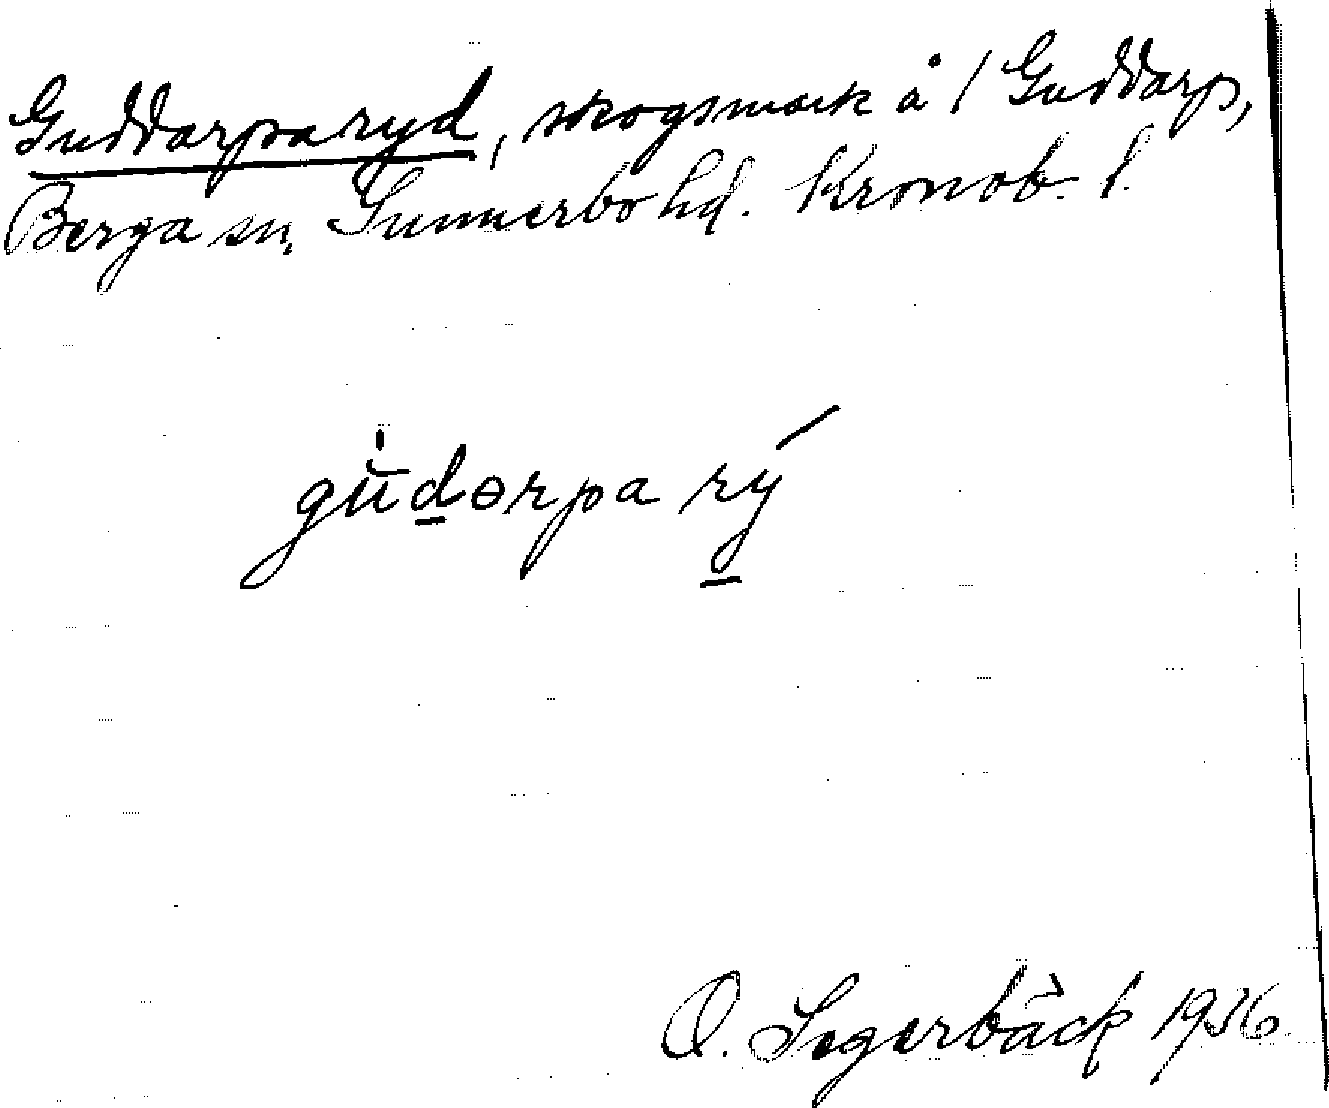 Guddarparyd, skogsmark å / Guddarp,
Berga sn, Sunnerbo hd. Kronob. l.
gùdɵrpa rý
O. Segerbäck 1936